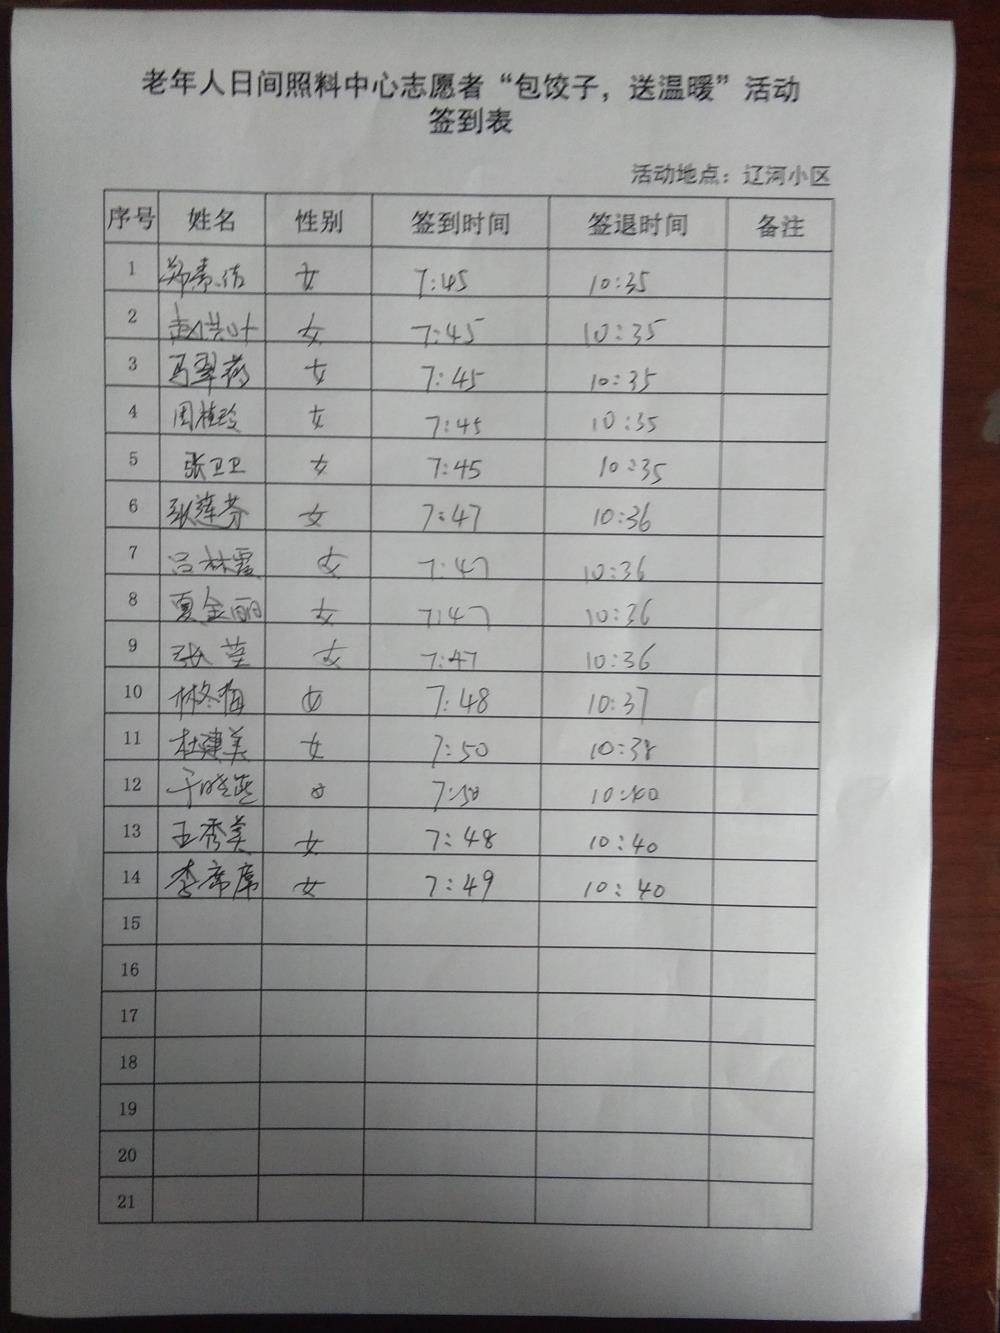 老年人日间照料中心志愿者“包饺子，送温暖”活动
签到表
活动地点：辽河小区
序号 姓名 性别 签到时间 签退时间 备注
1 郑 女 7:45 10:35
2 女 7:45 10:35
3 马翠荷 女 7:45 10:35
4 周桂玲 女 7:45 10:35
5 张卫卫 女 7:45 10:35
6 张莲芬 女 7:47 10:36
7 吕林霞 女 7:47 10:36
8 夏金丽 女 7:47 10:36
9 张莹 女 7:47 10:36
10 林冬梅 女 7:48 10:37
11 杜建美 女 7:50 10:38
12 于晓燕 女 7:50 10:40
13 王秀美 女 7:48 10:40
14 李席席 女 7:49 10:40
15
16
17
18
19
20
21